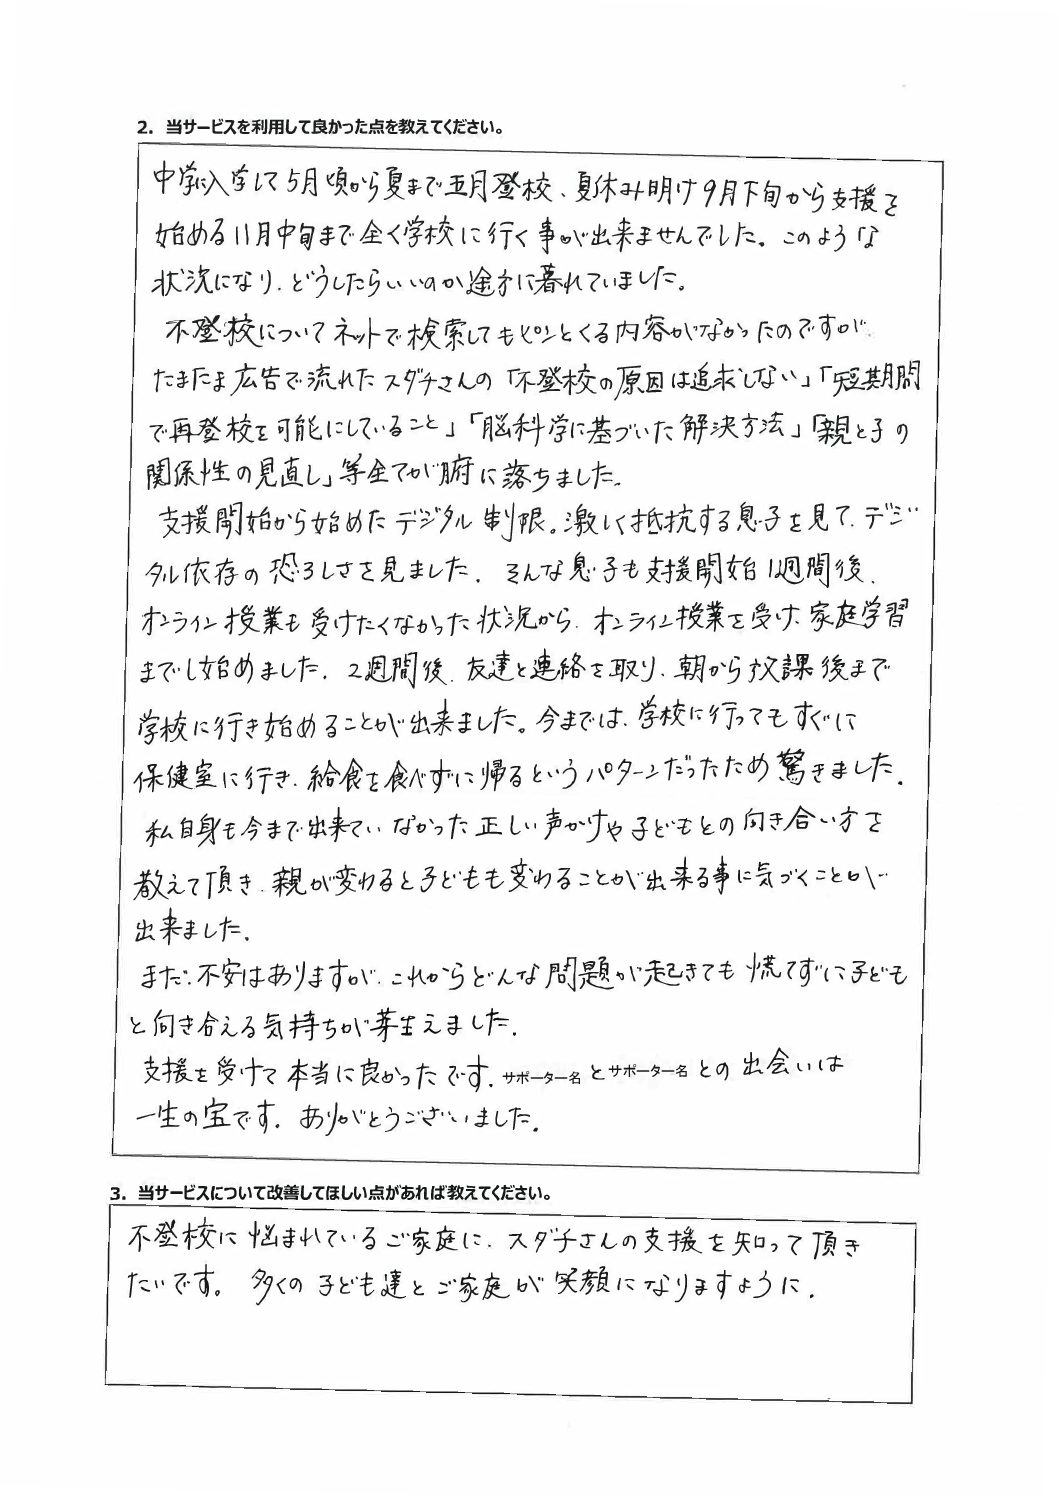 2．当サービスを利用して良かった点を教えてください。
中学に入学して5月頃から夏まで五月登校、夏休み明け9月下旬から支援を
始める11月中旬まで全く学校に行く事が出来ませんでした。このような
状況になり、どうしたらいいのか途方に暮れていました。
不登校についてネットで検索してもピンとくる内容がなかったのですが、
たまたま広告で流れたスダチさんの「不登校の原因は追求しない」「短期間
で再登校を可能にしていること」「脳科学に基づいた解決方法」「親と子の
関係性の見直し」等全てが腑に落ちました。
支援開始から始めたデジタル制限。激しく抵抗する息子を見て、デジ
タル依存の恐ろしさを見ました。そんな息子も支援開始1週間後、
オンライン授業も受けたくなかった状況から、オンライン授業を受け、家庭学習
までし始めました。2週間後、友達と連絡を取り、朝から放課後まで
学校に行き始めることが出来ました。今までは、学校に行ってもすぐに
保健室に行き、給食を食べずに帰るというパターンだったため驚きました。
私自身も今まで出来ていなかった正しい声かけや子どもとの向き合い方を
教えて頂き、親が変わると子どもも変わることが出来る事に気づくことが
出来ました。
まだ、不安はありますが、これからどんな問題が起きても慌てずに子ども
と向き合える気持ちが芽生えました。
支援を受けて本当に良かったです。サポーター名とサポーター名との出会いは
一生の宝です。ありがとうございました。
3．当サービスについて改善してほしい点があれば教えてください。
不登校に悩まれているご家庭に、スダチさんの支援を知って頂き
たいです。多くの子ども達とご家庭が笑顔になりますように。